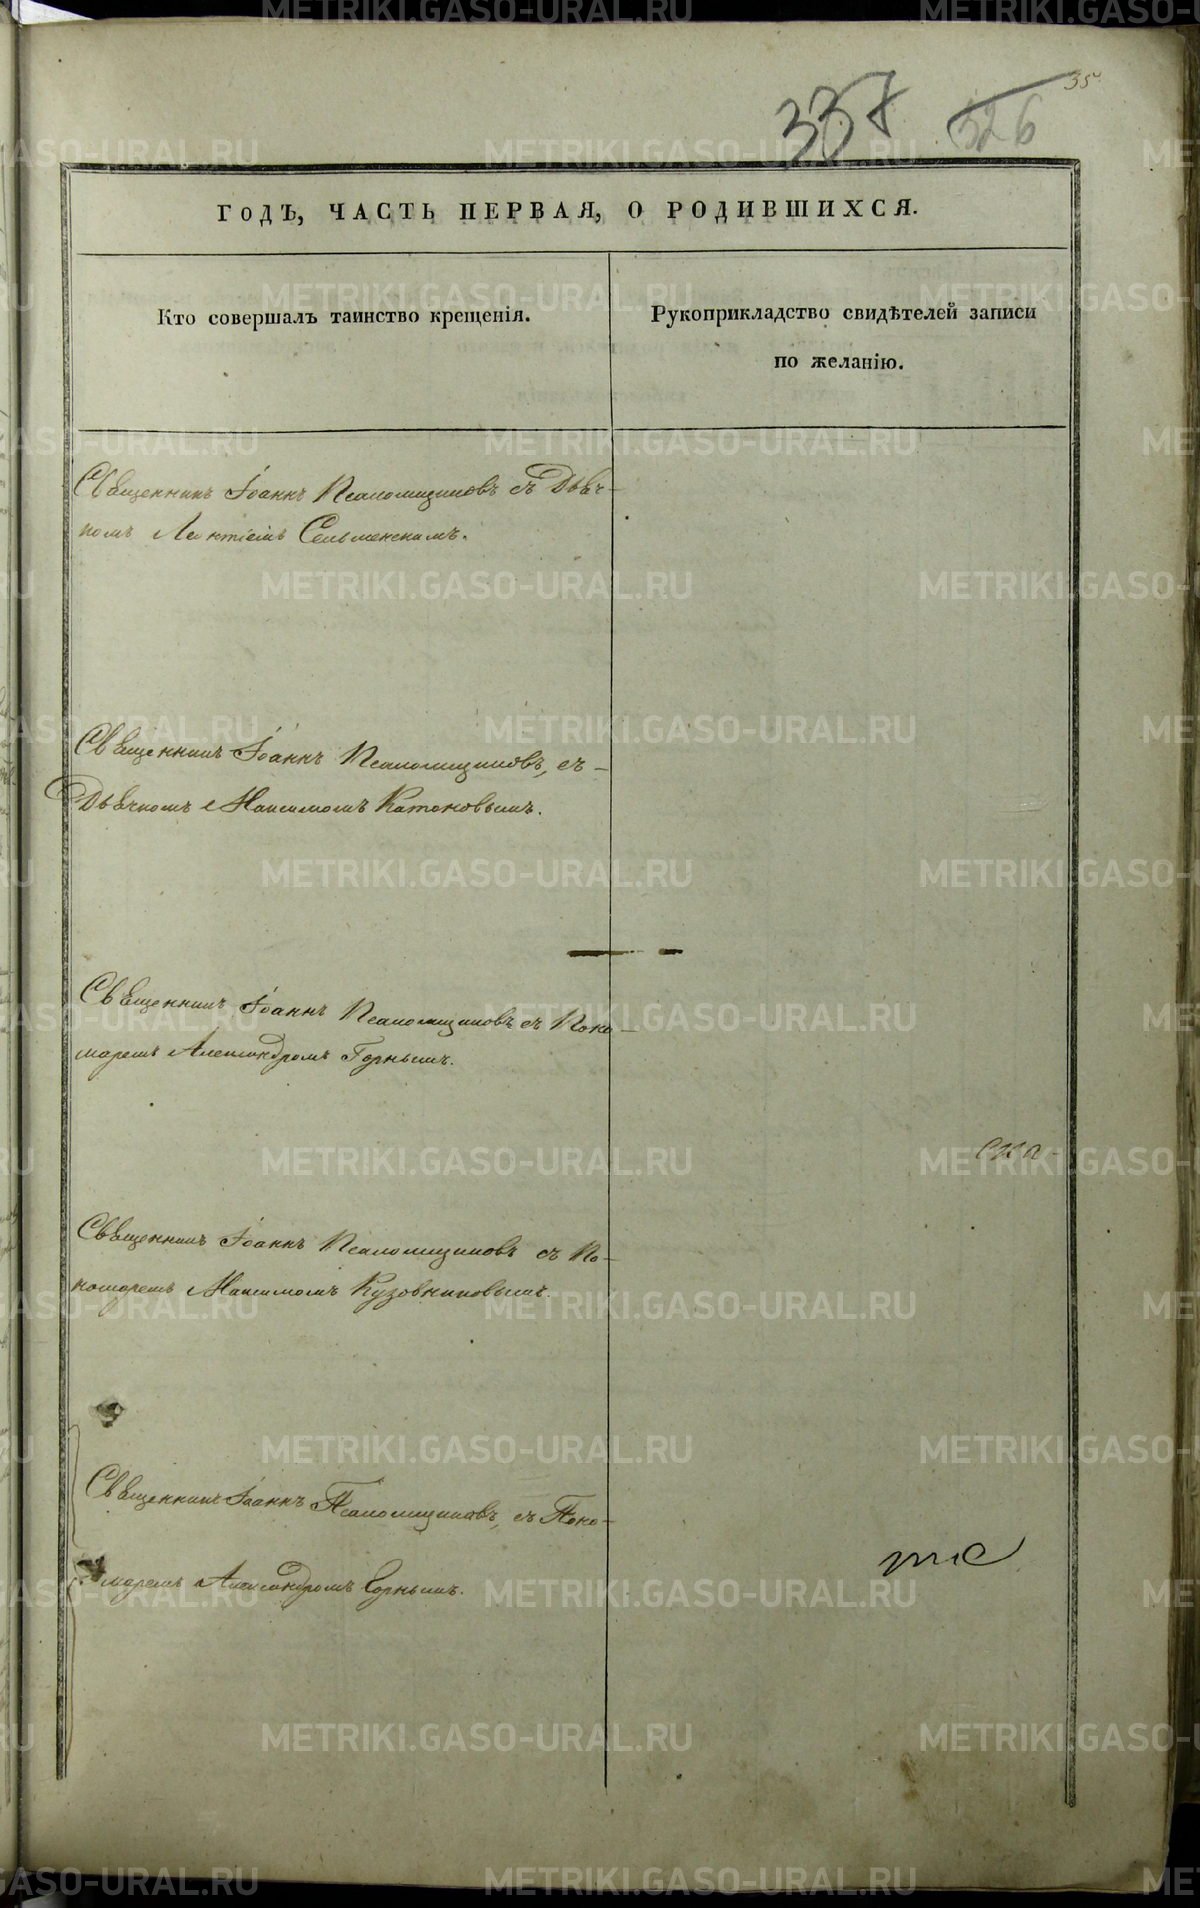 35
337 326
ГОДЪ, ЧАСТЬ ПЕРВАЯ, О РОДИВШИХСЯ.
Кто совершалъ таинство крещенія.
Рукоприкладство свидѣтелей записи
по желанію.
Священникъ Іоаннъ Псаломщиковъ съ Дьяч-
комъ Леонтіемъ Сельменскимъ.
Священникъ Іоаннъ Псаломщиковъ, съ-
Дьячкомъ Максимомъ Катановымъ.
Священникъ Іоаннъ Псаломщиковъ съ Поно-
маремъ Александромъ Горнымъ.
Священникъ Іоаннъ Псаломщиковъ съ По-
номаремъ Максимомъ Кузовниковымъ.
Священникъ Іоаннъ Псаломщиковъ, съ Поно-
маремъ Александромъ Горнымъ.
METRIKI.GASO-URAL.RU